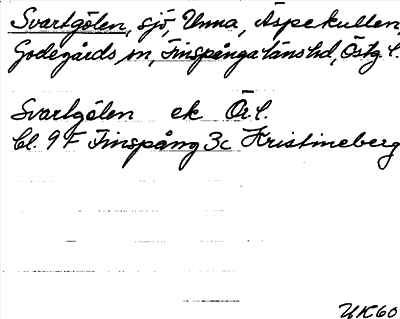 Svartgölen, sjö, Unna, Äspekullen,
Godegårds sn, Finspånga länshd, Östg. l.
Svartgölen ek Ö.l.
bl. 9 F Finspång 3c Kristineberg
UK60